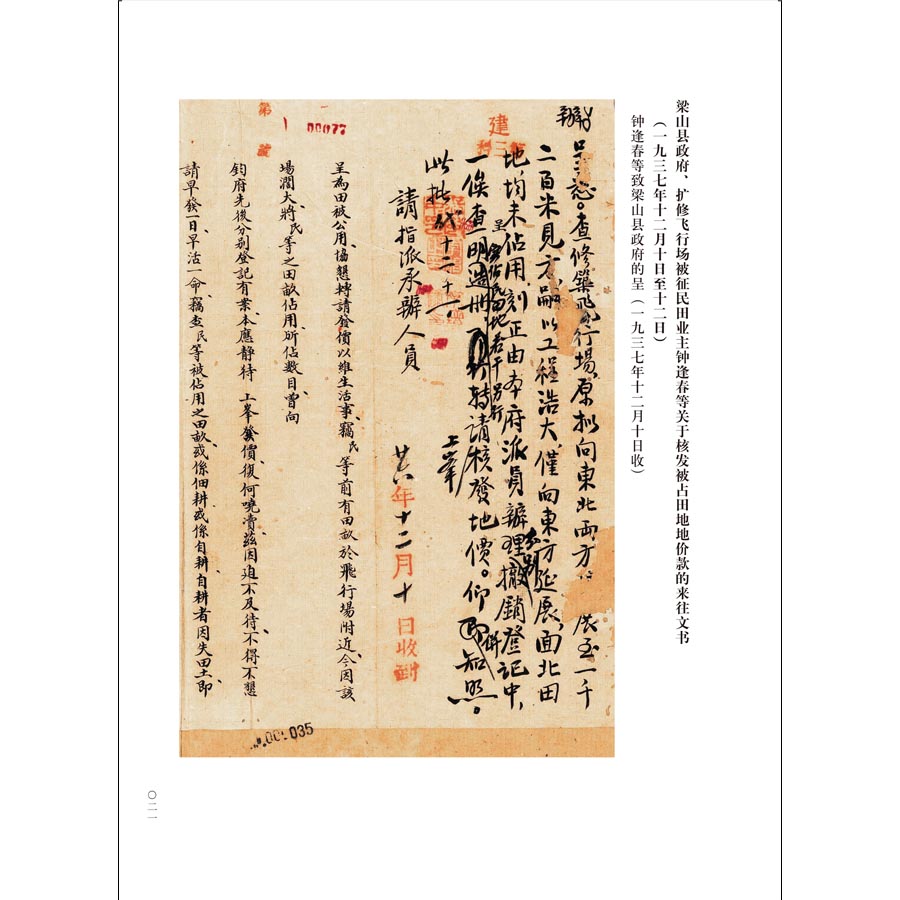 梁山县政府、扩修飞行场被征民田业主钟逢春等关于核发被占田地地价款的来往文书
（一九三七年十二月十日至十二日）
钟逢春等致梁山县政府的呈（一九三七年十二月十日收）
呈悉。查修築飛行場，原拟向東北両方 展至一千
二百米見方，嗣以工程浩大，僅向東方延展，面北田
地均未佔用，刻正由本府派員辦理撤銷登記中，
一俟查明造冊 轉請核發地價。仰 知照。
上峯
此批 代 十二 十一
建
三科
請指派承辦人員
廿六年十二月十日收到
第
00077
號
呈為田被公用，協懇轉請發價以維生活事，竊民等前有田畝於飛行場附近，今因該
場濶大，將民等之田畝佔用，所佔數目曾向
鈞府先後分别登記有案，本應静待 上峯發價，復何曉凟，茲因迫不及待，不得不懇
請早發一日，早活一命，竊查民等被佔用之田畝，或係佃耕，或係自耕，自耕者因失田土，即
001035
〇二一